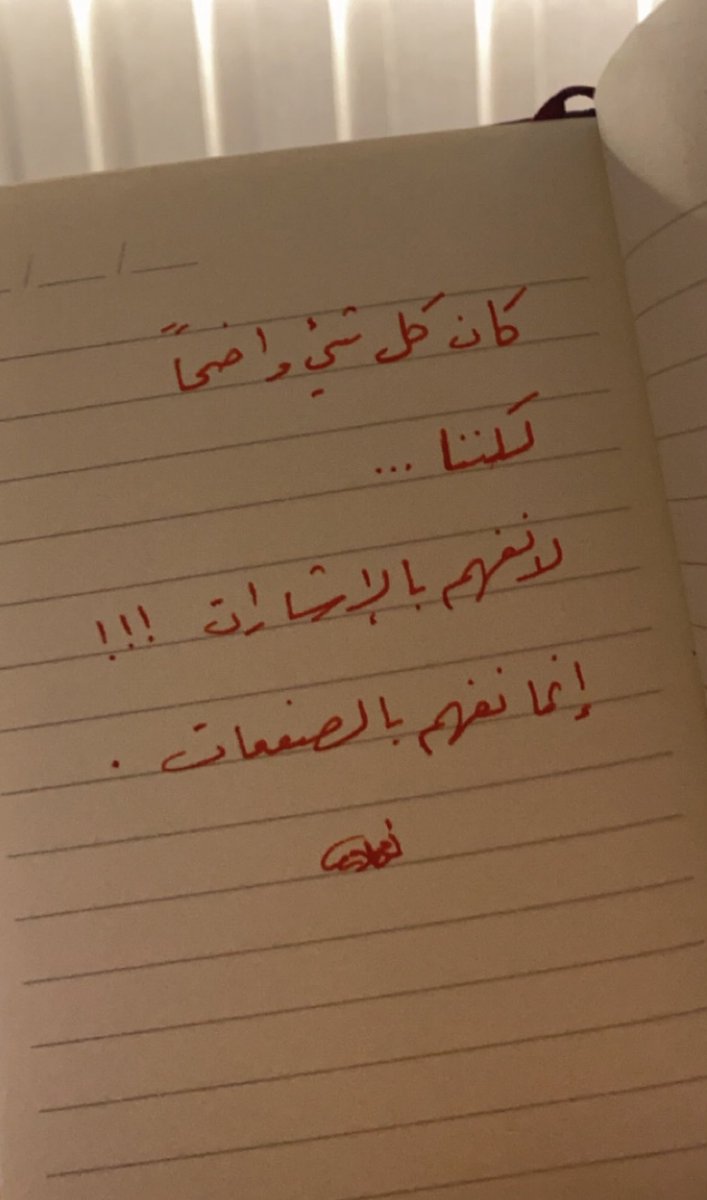 كان كل شيء واضحاً
لكننا ...
لا نفهم بالإشارات !!!
إنما نفهم بالصفعات .